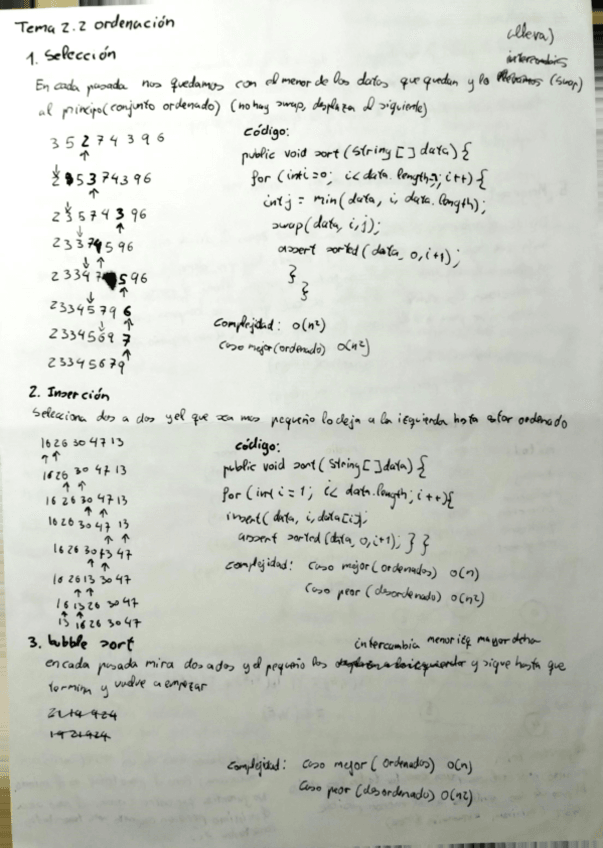 Tema 2.2 ordenación
(lleva)
1. Selección
intercambia
En cada pasada nos quedamos con el menor de los datos que quedan y lo (swap)
al principo (conjunto ordenado) (no hay swap, desplaza al siguiente)
3 5 2 7 4 3 9 6
código:
public void sort (String [] data) {
for (int i=0; i< data.length; i++) {
int j = min (data, i, data.length);
swap (data, i, j);
assert sorted (data, 0, i+1);
}
}
2 5 3 7 4 3 9 6
2 3 5 7 4 3 9 6
2 3 3 7 4 5 9 6
2 3 3 4 7 5 9 6
2 3 3 4 5 7 9 6
2 3 3 4 5 6 9 7
2 3 3 4 5 6 7 9
Complejidad: O(n²)
Caso mejor (ordenado) O(n²)
2. Inserción
Selecciona dos a dos y el que sea mas pequeño lo deja a la izquierda hasta estar ordenado
16 26 30 47 13
16 26 30 47 13
16 26 30 47 13
16 26 30 47 13
16 26 30 13 47
16 26 13 30 47
16 13 26 30 47
13 16 26 30 47
código:
public void sort (String [] data) {
for (int i = 1; i< data.length; i++) {
insert (data, i, data[i]);
assert sorted (data, 0, i+1); } }
complejidad: caso mejor (ordenados) O(n)
Caso peor (desordenado) O(n2)
3. bubble sort
intercambia menor izq mayor dcha
en cada pasada mira dos a dos y el pequeño los y sigue hasta que
termina y vuelve a empezar
21 19 9 24
19 21 9 24
complejidad: caso mejor (ordenados) O(n)
Caso peor (desordenado) O(n2)